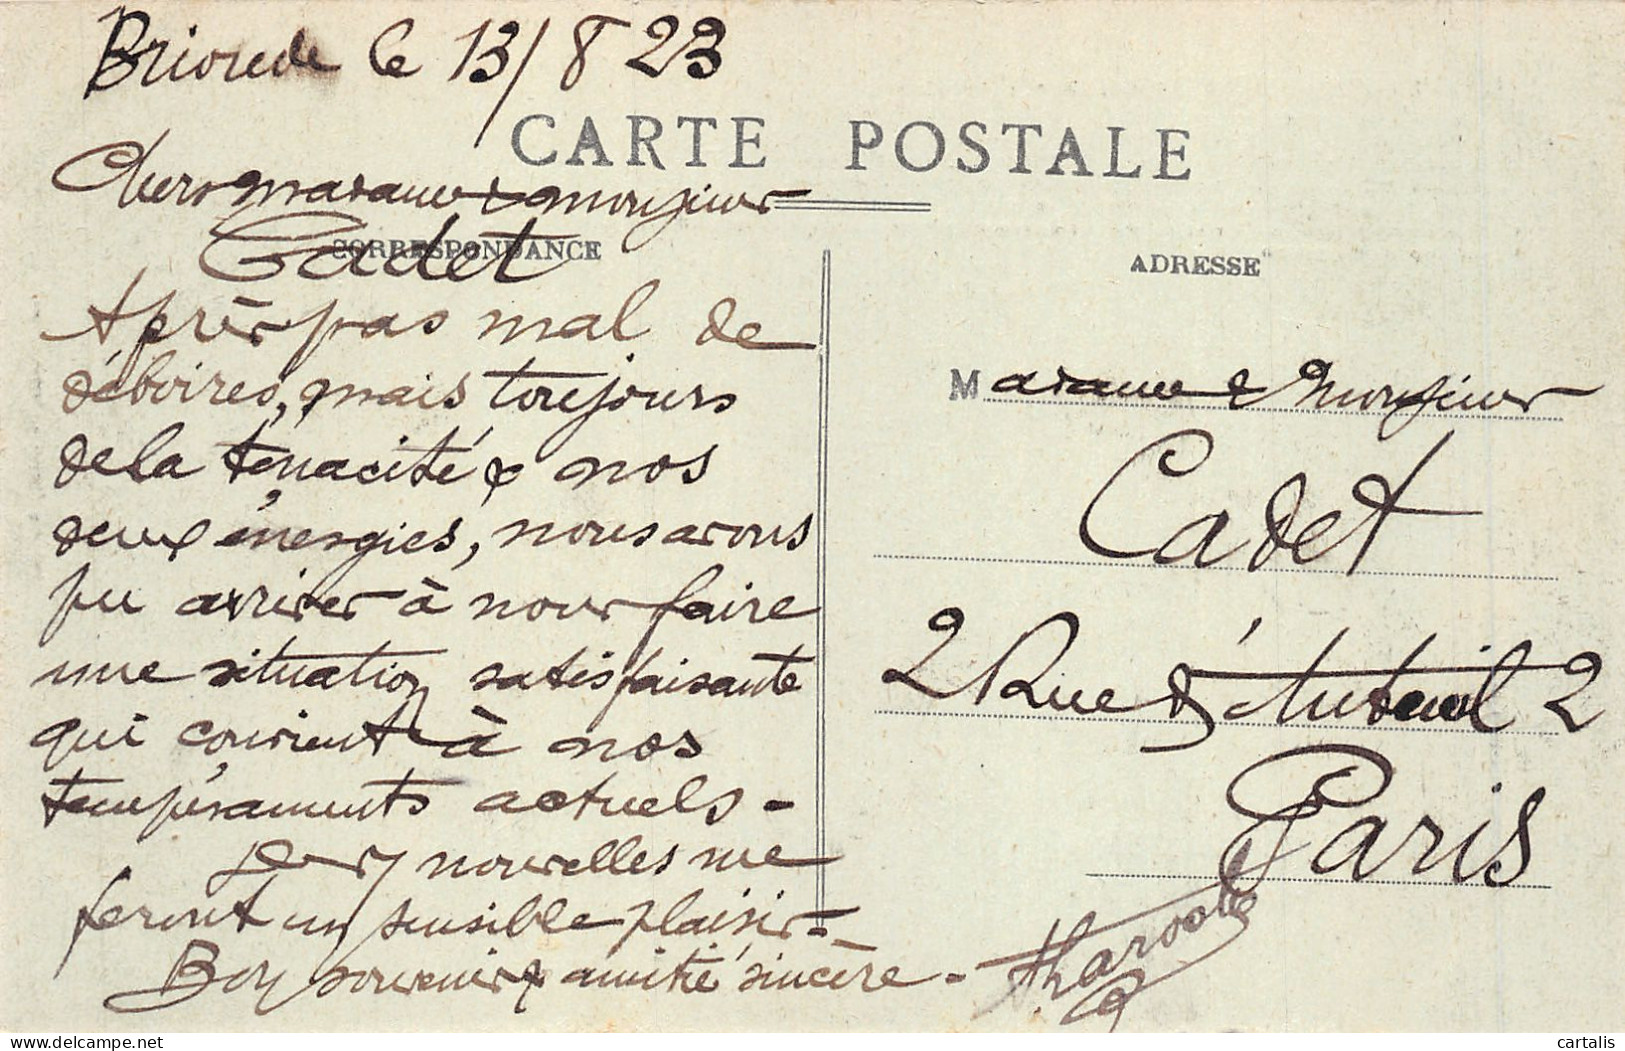 le 13/8 23
CARTE POSTALE
Chers madame & monsieur
Cadet
CORRESPONDANCE
ADRESSE
Après pas mal de
déboires, mais toujours
de la ténacité & nos
deux énergies, nous avons
pu arriver à nous faire
une situation satisfaisante
qui convient à nos
tempéraments actuels -
nouvelles me
feront un sensible plaisir -
Bon souvenir & amitié sincère -
Madame & Monsieur
Cadet
2 Rue d'Auteuil 2
Paris
cartalis